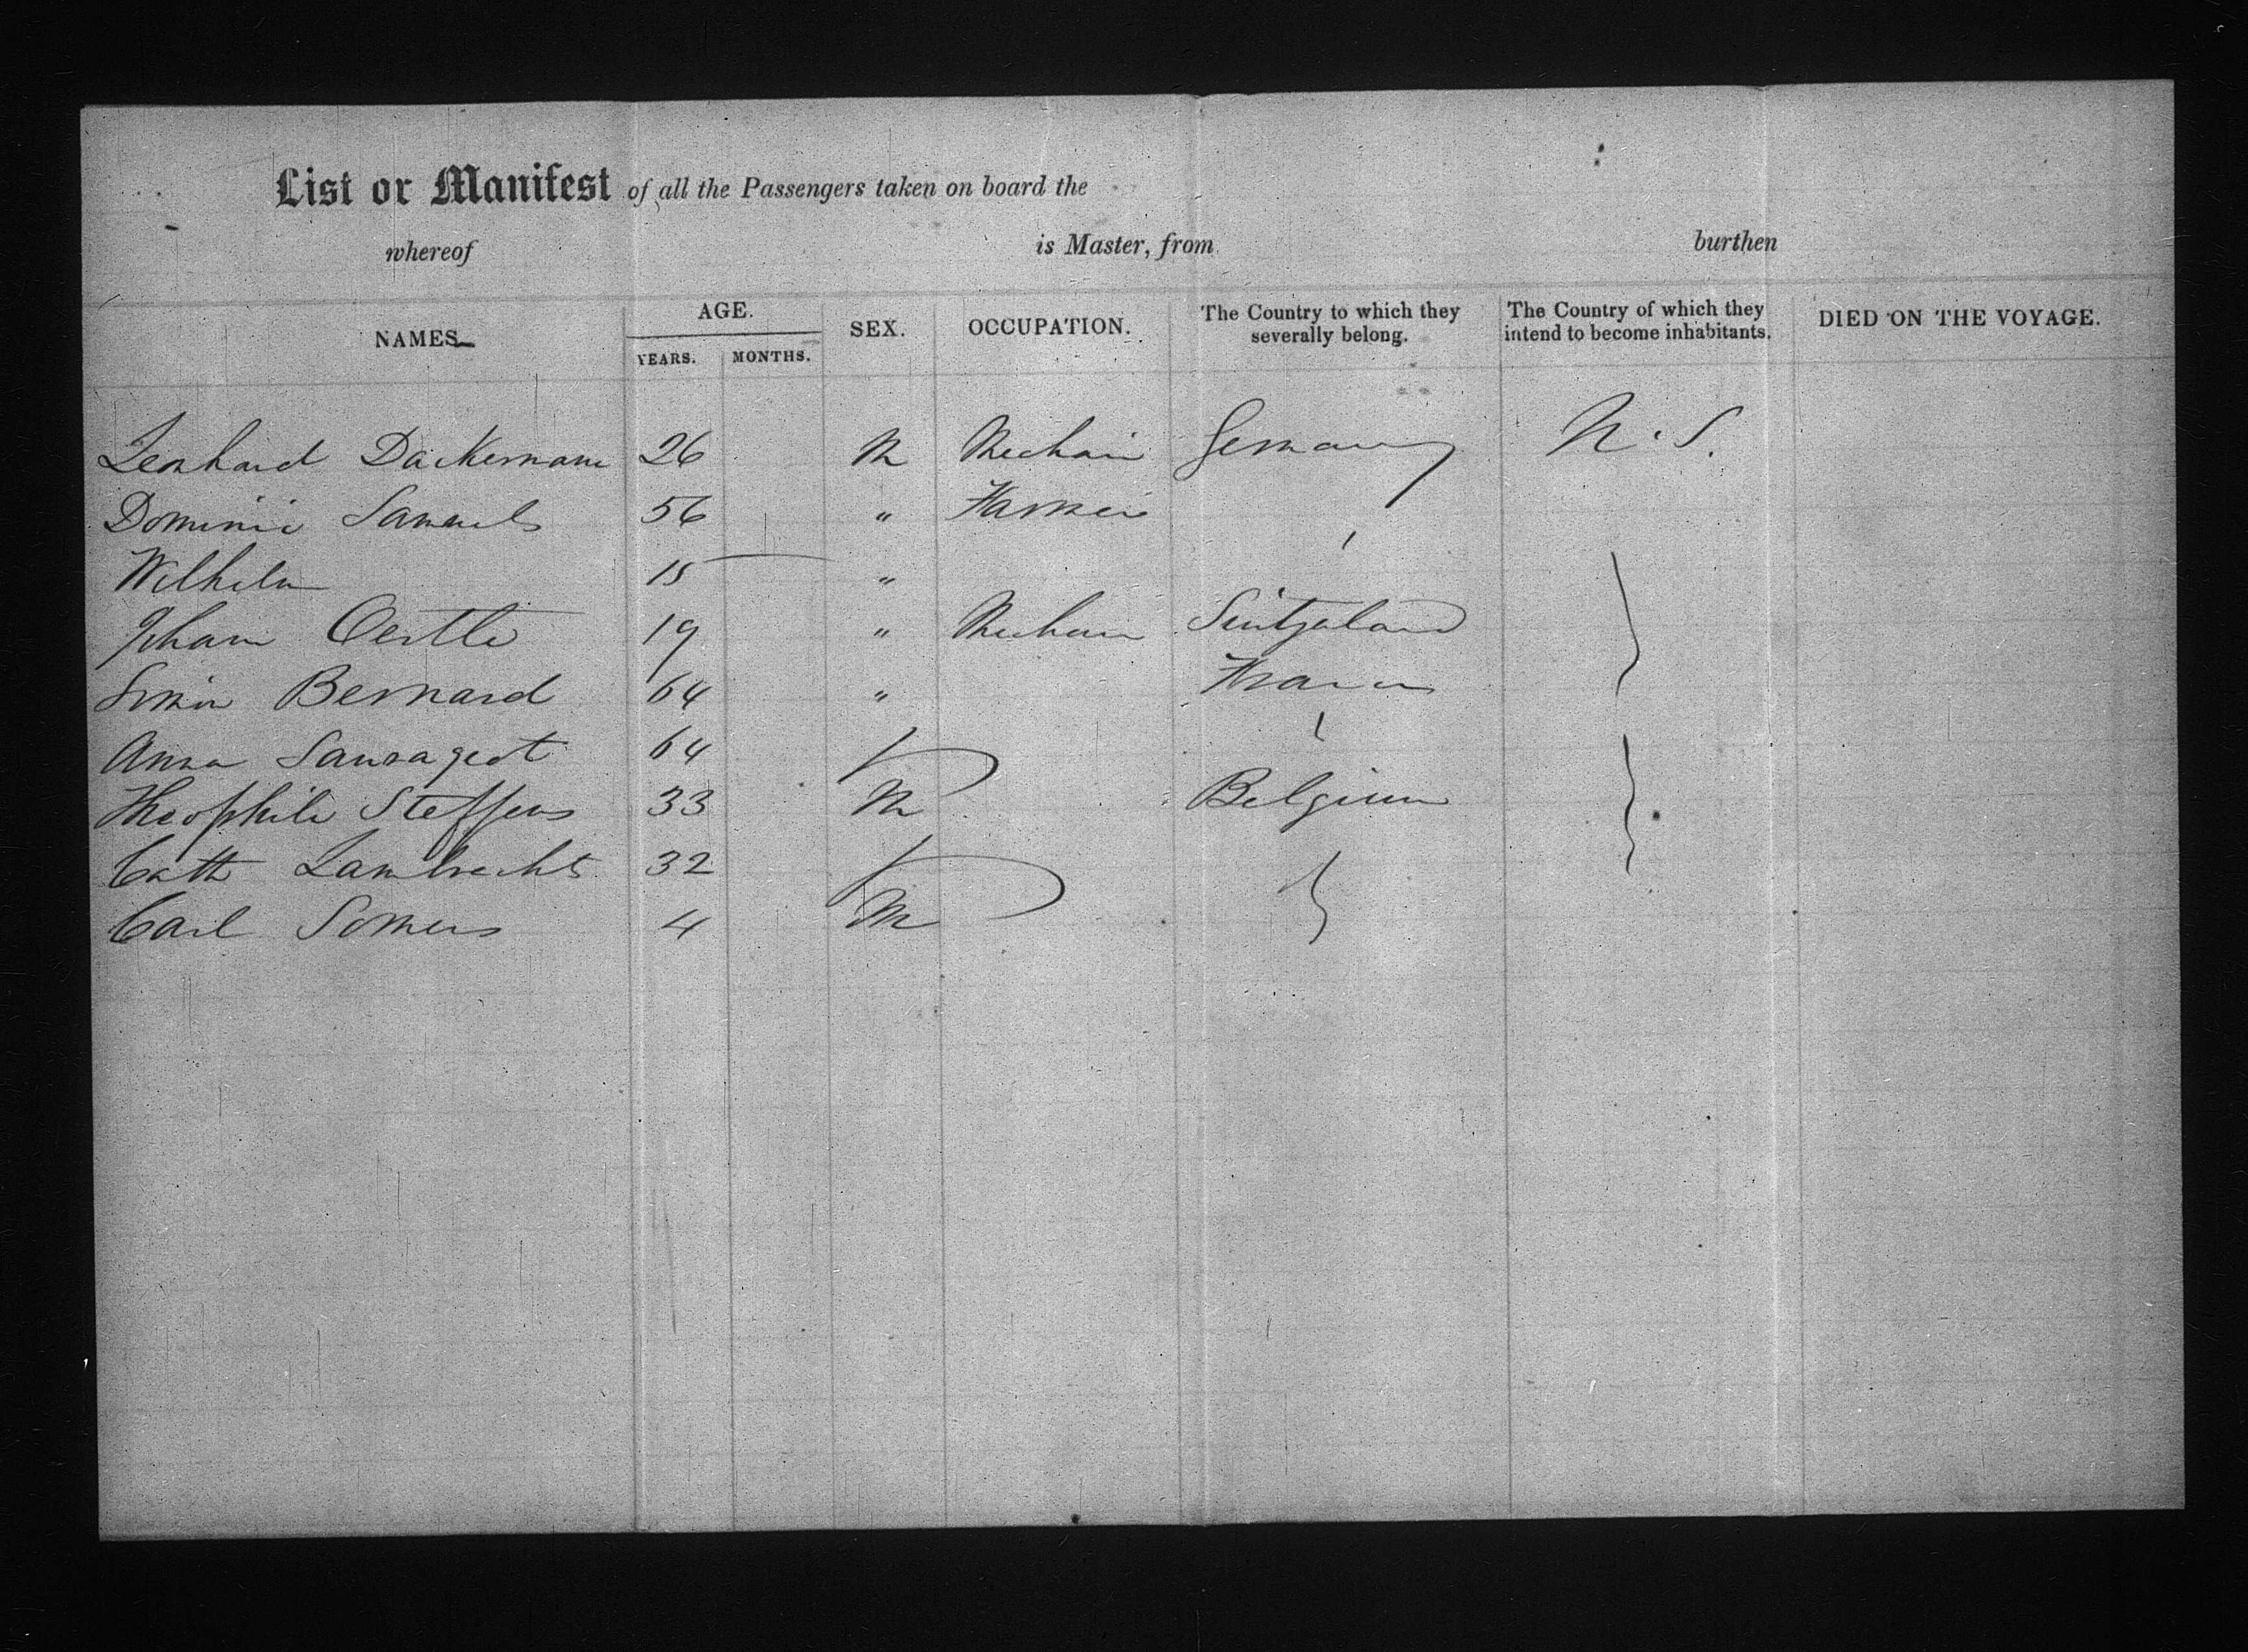 List or Manifest of all the Passengers taken on board the
whereof is Master, from burthen
NAMES AGE. YEARS. MONTHS. SEX. OCCUPATION. The Country to which they severally belong. The Country of which they intend to become inhabitants. DIED ON THE VOYAGE.
Leonhard Dackermann 26 M Mechanic Germany U.S.
Dominic Samuels 56 " Farmer
Wilhelm 15 "
Johann Oertle 19 " Mechanic Switzerland
Simon Bernard 64 " France
Anna Sauvageot 64
Theophile Steffens 33 M Belgium
Cath Lambrechts 32
Carl Somers 4 M